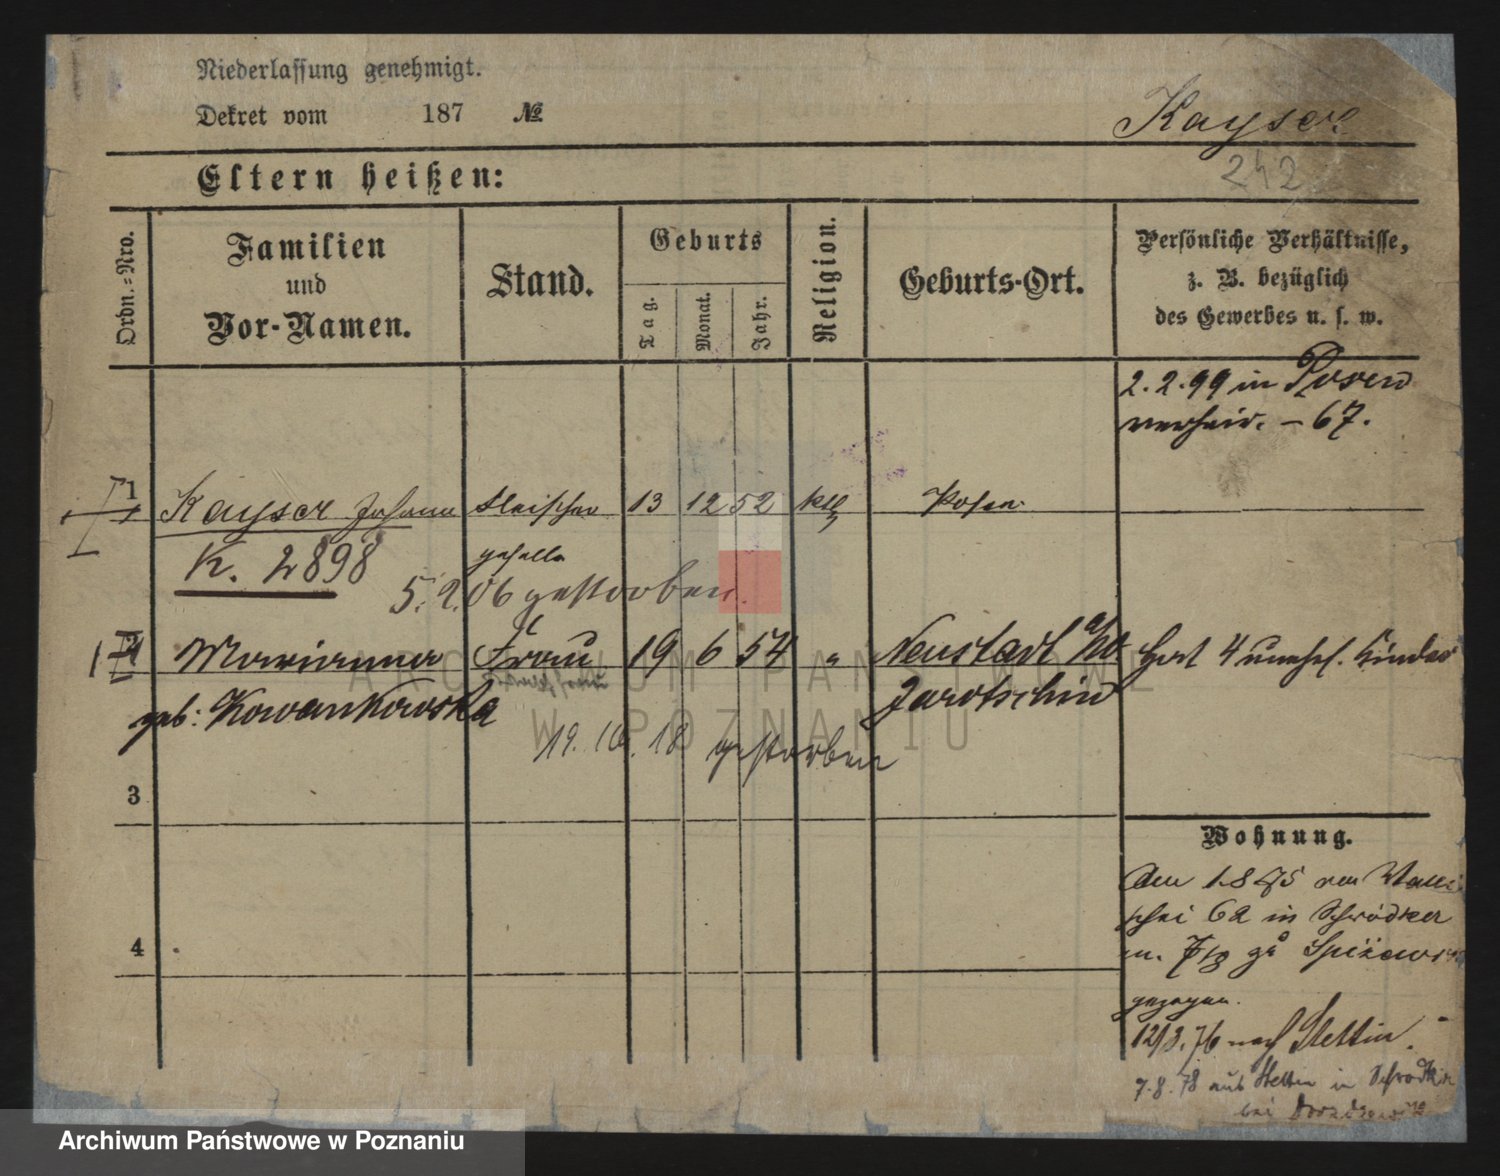 Niederlassung genehmigt.
Dekret vom 187 №
Kayser
242
Eltern heißen:
Ordn.=Nro.
Familien
und
Vor-Namen.
Stand.
Geburts
Tag.
Monat.
Jahr.
Religion.
Geburts-Ort.
Persönliche Verhältnisse,
z. B. bezüglich
des Gewerbes u. s. w.
2. 2. 99 in Posen
verheir. – 67.
1 Kayser Johann Fleischer 13 12 52 kth Posen
geselle
K. 2898
5. 2. 06 gestorben.
2 Marianna Frau 19 6 54 " Neustadt a/W Hat 4 unehel. Kinder
geb: Kowankowska Jarotschin
19. 10. 18 gestorben
3
Wohnung.
Am 1875 von Walli
schei 62 in Schrodker
m. 7/8 zu
gezogen.
12/3. 76 nach Stettin.
7. 8. 78 aus Stettin in Schrodka
bei
4
ARCHIWUM PAŃSTWOWE
W POZNANIU
Archiwum Państwowe w Poznaniu